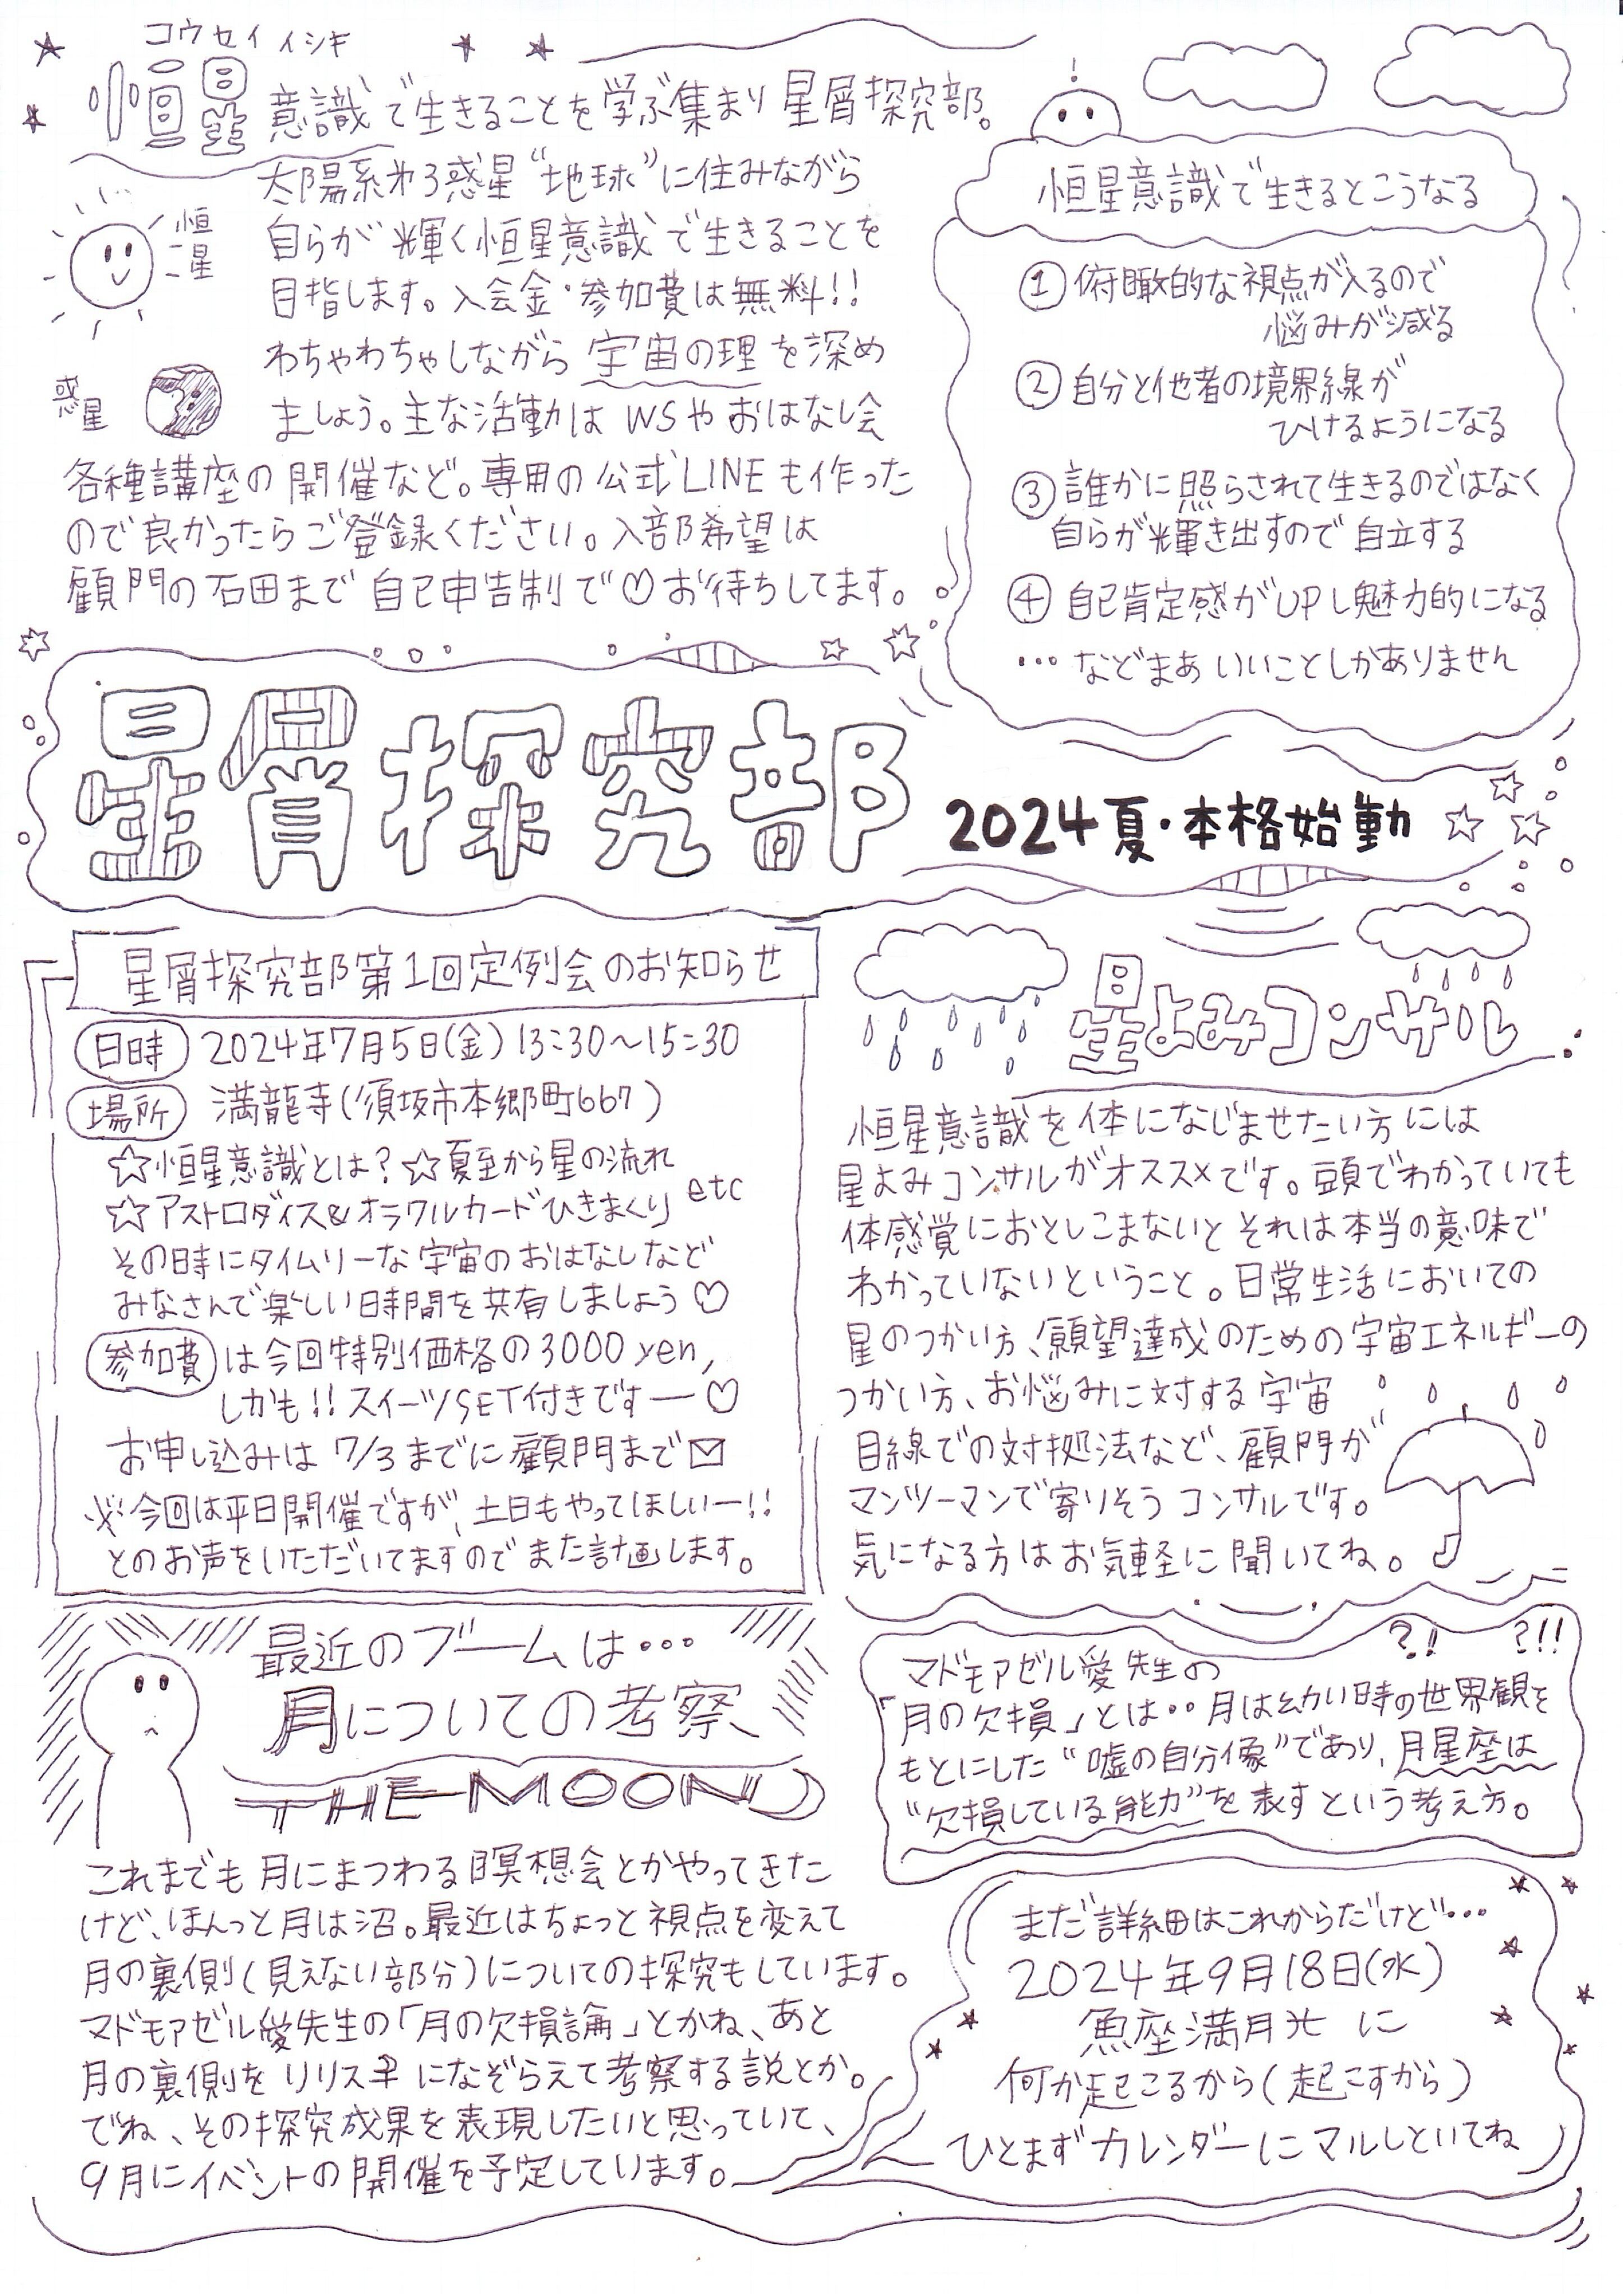 コウセイイシキ
恒星意識で生きることを学ぶ集まり星屑探究部。
太陽系オ3惑星“地球”に住みながら
自らが輝く恒星意識で生きることを
目指します。入会金・参加費は無料!!
わちゃわちゃしながら宇宙の理を深め
ましょう。主な活動はWSやおはなし会
各種講座の開催など。専用の公式LINEも作った
ので良かったらご登録ください。入部希望は
顧問の石田まで自己申告制で♡お待ちしてます。
恒星
惑星
恒星意識で生きるとこうなる
①俯瞰的な視点が入るので
悩みが減る
②自分と他者の境界線が
ひけるようになる
③誰かに照らされて生きるのではなく
自らが輝き出すので自立する
④自己肯定感がUPし魅力的になる
…などまあいいことしかありません
星屑探究部
2024夏・本格始動
星屑探究部第1回定例会のお知らせ
日時 2024年7月5日(金)13:30〜15:30
場所 満龍寺(須坂市本郷町667)
☆恒星意識とは?☆夏至から星の流れ
☆アストロダイス&オラクルカードひきまくり etc
その時にタイムリーな宇宙のおはなしなど
みなさんで楽しい時間を共有しましょう♡
参加費は今回特別価格の3000yen,
しかも!!スイーツSET付きですー♡
お申し込みは7/3までに顧問まで✉
※今回は平日開催ですが、土日もやってほしいー!!
とのお声をいただいてますのでまた計画します。
星よみコンサル
恒星意識を体になじませたい方には
星よみコンサルがオススメです。頭でわかっていても
体感覚におとしこまないとそれは本当の意味で
わかっていないということ。日常生活においての
星のつかい方、願望達成のための宇宙エネルギーの
つかい方、お悩みに対する宇宙
目線での対処法など、顧問が
マンツーマンで寄りそうコンサルです。
気になる方はお気軽に聞いてね。
最近のブームは…
月についての考察
THE MOON
これまでも月にまつわる瞑想会とかやってきた
けど、ほんっと月は沼。最近はちょっと視点を変えて
月の裏側(見えない部分)についての探究もしています。
マドモアゼル愛先生の「月の欠損論」とかね、あと
月の裏側をリリスになぞらえて考察する説とか。
でね、その探究成果を表現したいと思っていて、
9月にイベントの開催を予定しています。
?! ?!!
マドモアゼル愛先生の
「月の欠損」とは‥月は幼い時の世界観を
もとにした“嘘の自分像”であり、月星座は
“欠損している能力”を表すという考え方。
まだ詳細はこれからだけど…
2024年9月18日(水)
魚座満月に
何か起こるから(起こすから)
ひとまずカレンダーにマルしといてね